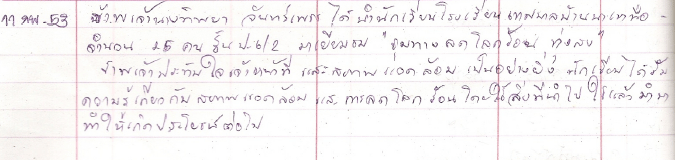 11 กพ-53 ข้าพเจ้านางทิพยา จันทร์เพชร ได้นำนักเรียนโรงเรียน เทศบาลบ้านนาเหนือ -
จำนวน 25 คน ชั้น ป.6/2 มาเยี่ยมชม "ชุมทางลดโลกร้อน ทุ่งสง"
ข้าพเจ้าประทับใจเจ้าหน้าที่ และสภาพแวดล้อม เป็นอย่างยิ่ง นักเรียนได้รับ
ความรู้เกี่ยวกับ สภาพแวดล้อม และ การลดโลกร้อน โดยใช้สิ่งที่นำไปใช้แล้ว นำมา
ทำให้เกิดประโยชน์ต่อไป